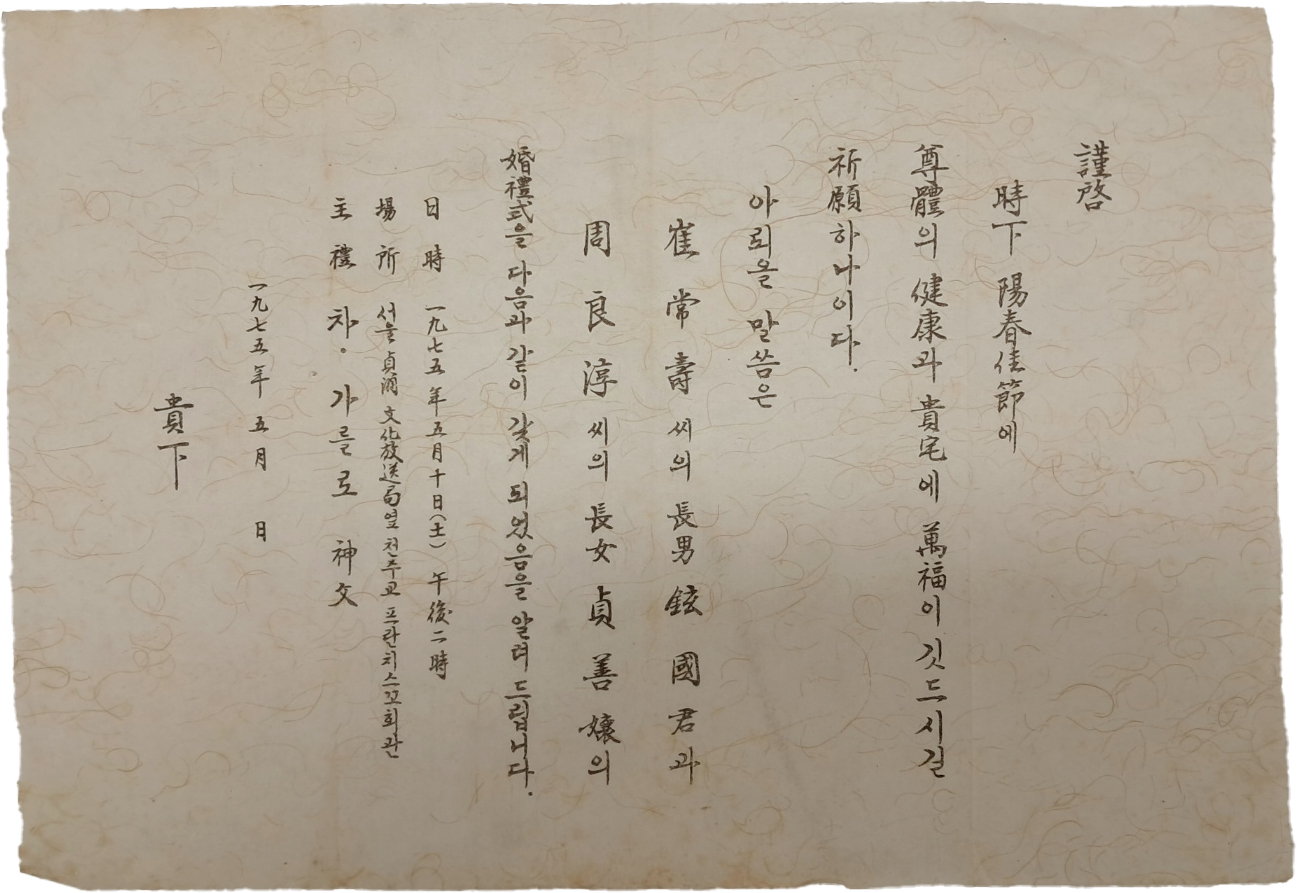 謹啓
時下 陽春佳節에
尊體의 健康과 貴宅에 萬福이 깃드시길
祈願하나이다.
아뢰올 말씀은
崔常壽씨의 長男 鉉國君과
周良淳씨의 長女 貞善孃의
婚禮式을 다음과 같이 갖게 되었음을 알려 드립니다.
日時 一九七五年 五月 十日(土) 午後 二時
場所 서울 貞洞 文化放送局옆 천주교 프란치스꼬회관
主禮 차·가를로 神父
一九七五年 五月 日
貴下